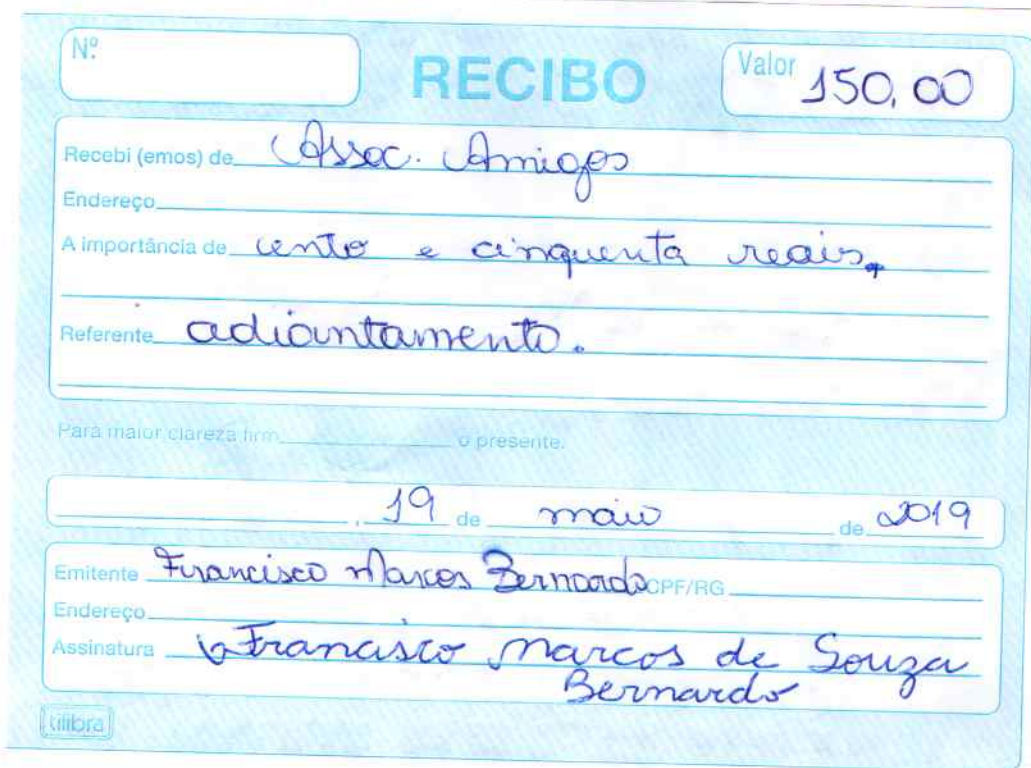 Nº
RECIBO
Valor 150,00
Recebi (emos) de Assoc. Amigos
Endereço
A importância de cento e cinquenta reais.
Referente adiantamento.
Para maior clareza firm o presente.
, 19 de maio de 2019
Emitente Francisco Marcos Bernardo CPF/RG
Endereço
Assinatura Francisco Marcos de Souza
Bernardo
tilibra